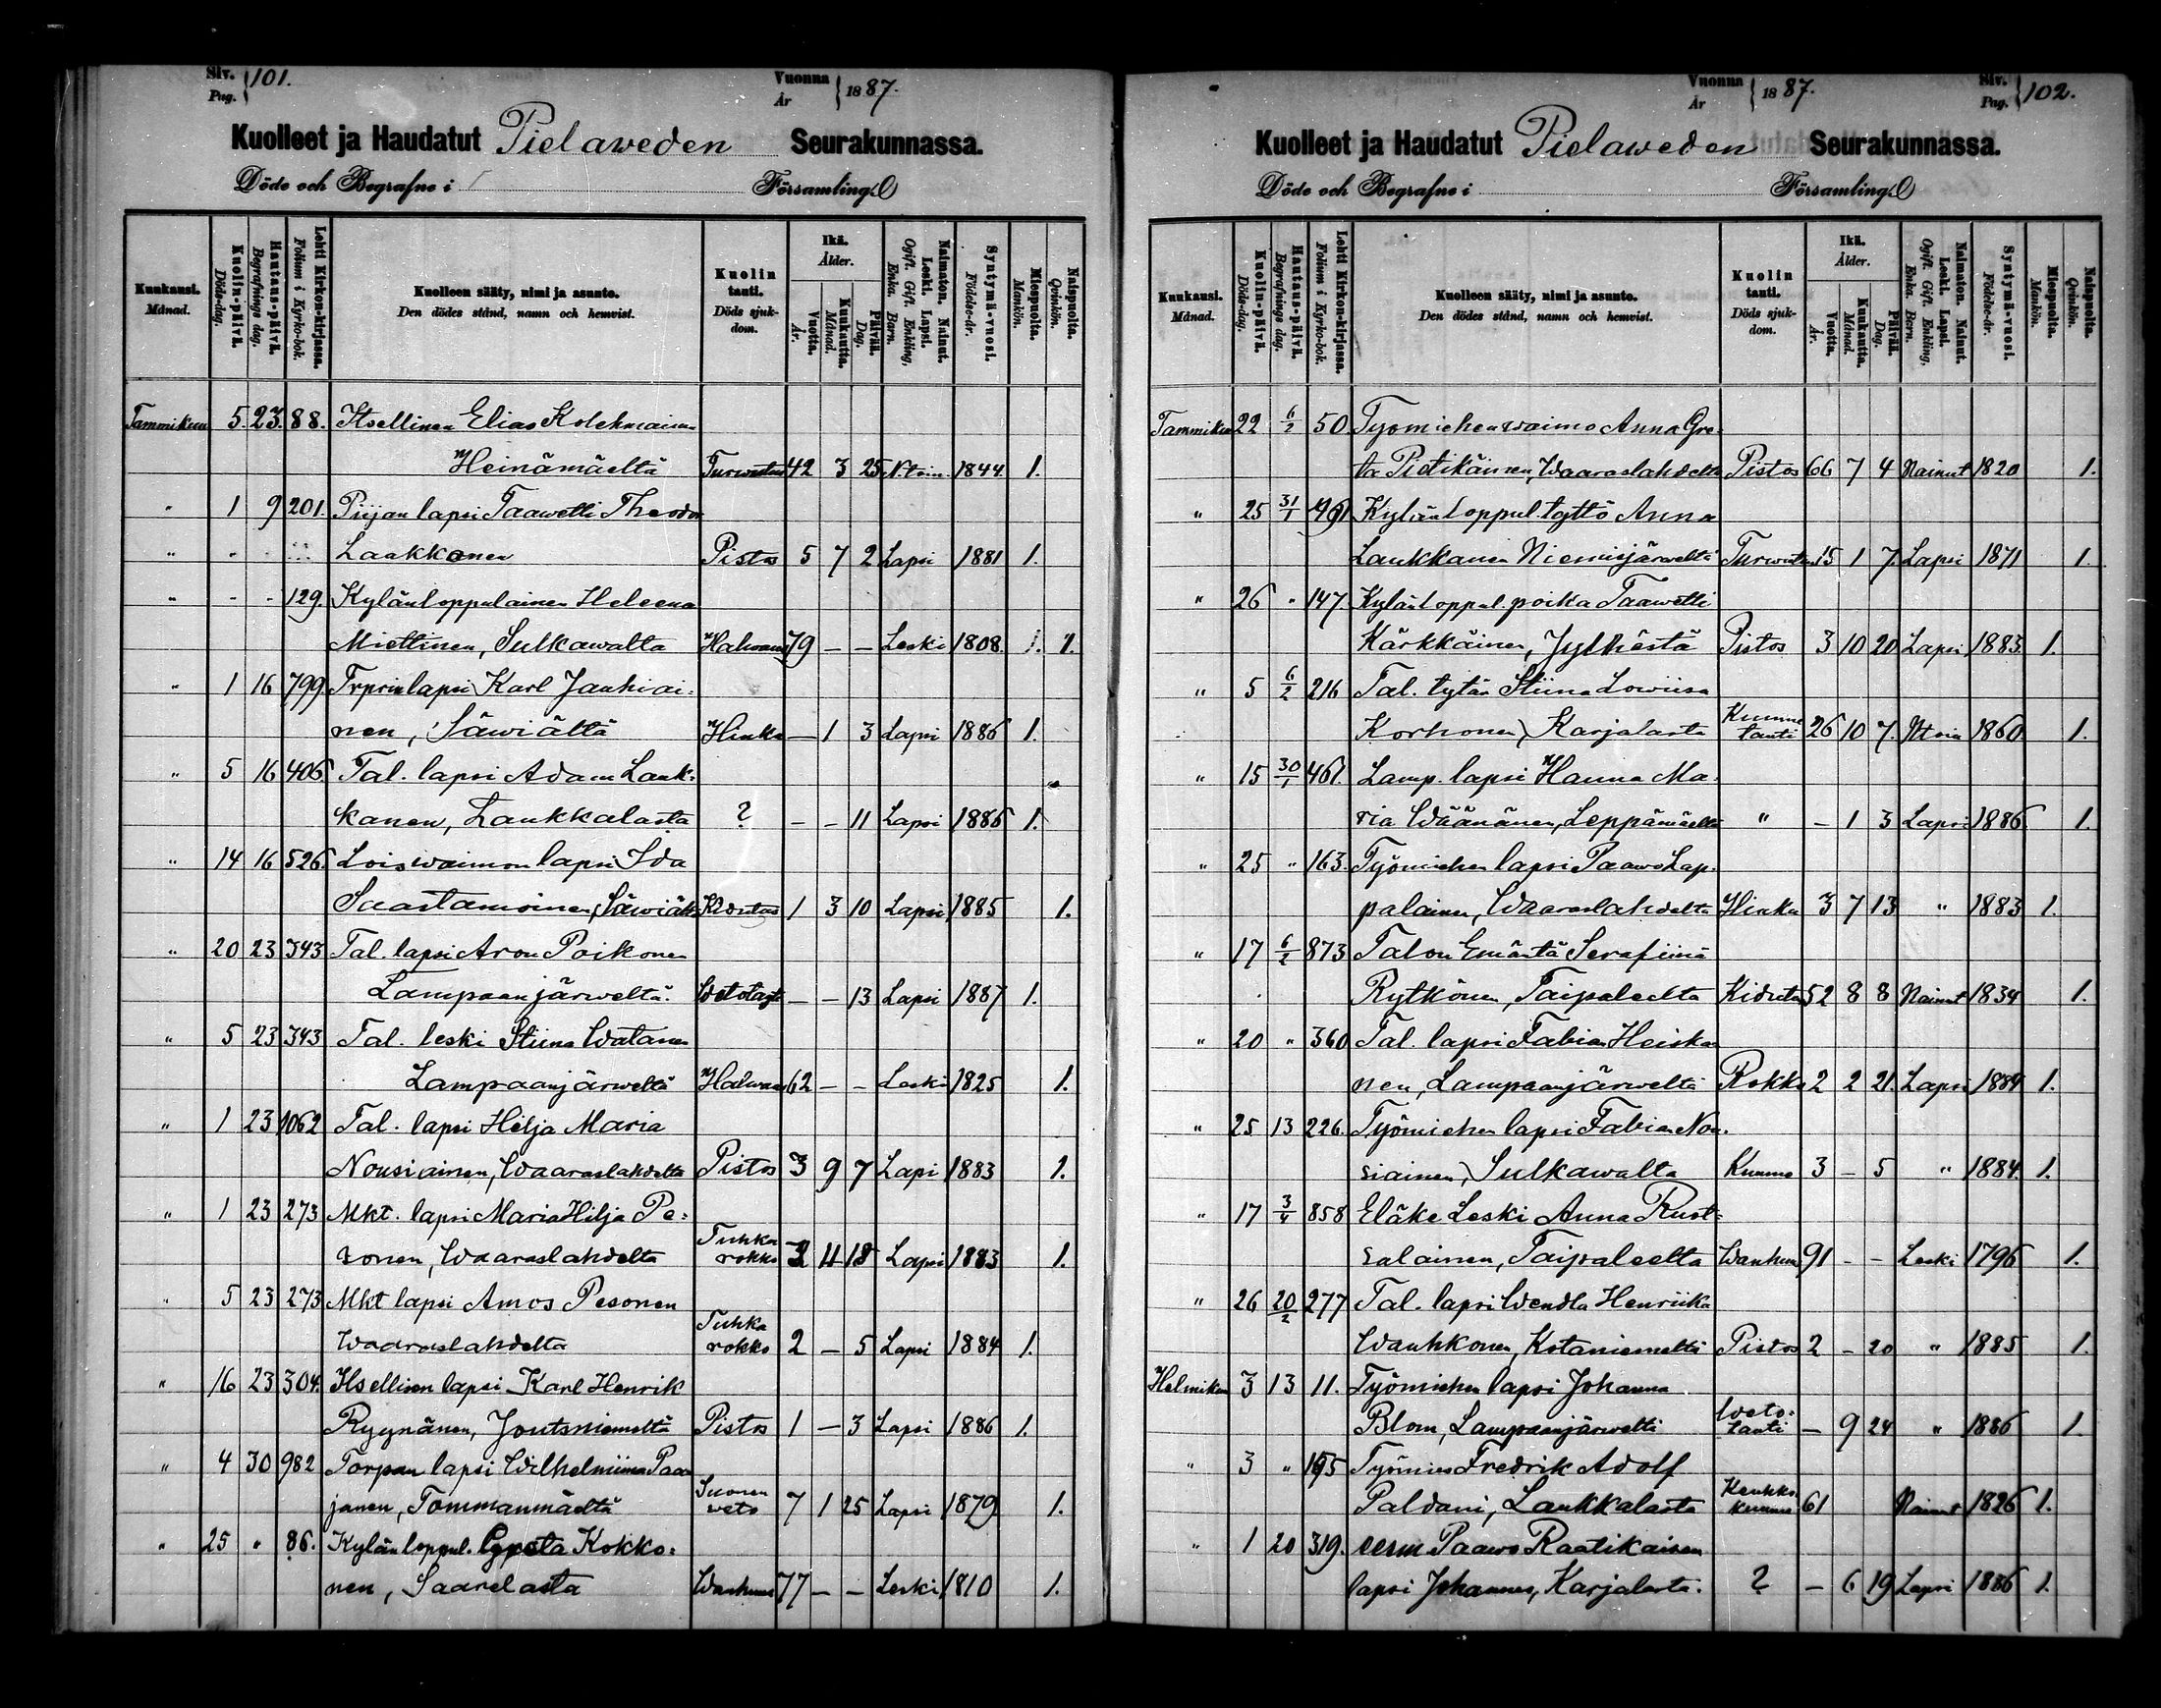 Siv. Pag. 101. Vuonna År 1887.
Kuolleet ja Haudatut Pielaweden Seurakunnassa.
Döde och Begrafne i Församling.
Kuukausi. Månad. Kuolin-päivä. Döds-dag. Hautaus-päivä. Begrafnings dag. Lehti Kirkon-kirjassa. Folium i Kyrko-bok. Kuolleen sääty, nimi ja asunto. Den dödes stånd, namn och hemvist. Kuolin tauti. Döds sjukdom. Ikä. Ålder. Vuotta. År. Kuukautta. Månad. Päivää. Dag. Naimaton. Nainut. Leski. Lapsi. Ogift. Gift. Enkling, Enka. Barn. Syntymä-vuosi. Födelse-år. Miespuolta. Mankön. Naispuolta. Qvinkön.
Tammikuu 5. 23. 88. Itsellinen Elias Kolehmainen
Heinämäeltä 42 3 25 1844. 1.
" 1 9 201. Piijan lapsi Taawetti Theodor
" Laakkonen Pistos 5 7 2 Lapsi 1881 1.
" - - 129. Kylänloppulainen Heleena
Miettinen, Sulkawalta Halvaus 79 — — Leski 1808. 1.
" 1 16 799. lapsi Karl Jauhiai=
nen, Säwiältä Hinku — 1 3 Lapsi 1886 1.
" 5 16 406. Tal. lapsi Adam Lauk=
kanen, Laukkalasta ? - - 11 Lapsi 1886 1.
" 14 16 526. Loiswaimon lapsi Ida
Saastamoinen, Säwiält. Kidutus 1 3 10 Lapsi 1885 1.
" 20 23 343 Tal. lapsi Aron Poikonen
Lampaanjärweltä. — — 13 Lapsi 1887 1.
" 5 23 343 Tal. leski Stiina Watanen
Lampaanjärweltä Halwaus 62 — — Leski 1825 1.
" 1 23 1062 Tal. lapsi Hilja Maria
Nousiainen, Waaraslahdelta Pistos 3 9 7 Lapi 1883 1.
" 1 23 273 Mkt. lapsi Maria Hilja Pe=
sonen, Waaraslahdelta Tuhka rokko 3 11 18 Lapsi 1883 1.
" 5 23 273 Mkt lapsi Amos Pesonen
Waaraslahdelta Tuhka rokko 2 — 5 Lapsi 1884 1.
" 16 23 304. Itsellisen lapsi Karl Henrik
Ryynänen, Joutsniemeltä Pistos 1 — 3 Lapsi 1886 1.
" 4 30 982 Torpan lapsi Wilhelmiina Paa
janen, Tommanmäeltä Suonen weto 7 1 25 Lapsi 1879 1.
" 25 " 86. Kylänloppul. Kokko=
nen, Saarelasta Wanhuus 77 — — Leski 1810 1.
Vuonna År 1887. Siv. Pag. 102.
Kuolleet ja Haudatut Pielaweden Seurakunnassa.
Döde och Begrafne i Församling.
Kuukausi. Månad. Kuolin-päivä. Döds-dag. Hautaus-päivä. Begrafnings dag. Lehti Kirkon-kirjassa. Folium i Kyrko-bok. Kuolleen sääty, nimi ja asunto. Den dödes stånd, namn och hemvist. Kuolin tauti. Döds sjukdom. Ikä. Ålder. Vuotta. År. Kuukautta. Månad. Päivää. Dag. Naimaton. Nainut. Leski. Lapsi. Ogift. Gift. Enkling, Enka. Barn. Syntymä-vuosi. Födelse-år. Miespuolta. Mankön. Naispuolta. Qvinkön.
Tammikuu 22 6/2 50. Työmiehen waimo Anna Gre=
ta Pietikäinen, Waaraslahdelta Pistos 66 7 4 Nainut 1820 1.
" 25 31/1 Kylänloppul. tyttö Anna
Laukkanen Niemisjärweltä 15 1 7. Lapsi 1871 1.
" 26 " 147. Kylänloppul. poika Taawetti
Kärkkäinen, Jylhästä Pistos 3 10 20 Lapsi 1883. 1.
" 5 6/2 216 Tal. tytär Stiina Lowiisa
Korhonen, Karjalasta Kumme tauti 26 10 7. 1860. 1.
" 15 30/1 461. Lamp. lapsi Hanna Ma=
ria Wäänänen, Leppämäeltä " — 1 3 Lapsi 1886. 1.
" 25 " 163. Työmiehen lapsi Paawo Lap=
palainen, Waaraslahdelta Hinku 3 7 13 " 1883 1.
" 17 6/2 873 Talon Emäntä Serafiina
Rytkönen, Taipaleelta Kidutus 52 8 8 Nainut 1834 1.
" 20 " 360 Tal. lapsi Fabian Heiska
nen, Lampaanjärweltä Rokko 2 2 21. Lapsi 1884 1.
" 25 13 226. Työmiehen lapsi Fabian Nou=
siainen, Sulkawalta Kumme 3 — 5 " 1884. 1.
" 17 3/4 858 Eläke Leski Anna Ruot=
salainen, Taipaleelta Wanhuus 91 - - Leski 1796 1.
" 26 20/2 277 Tal. lapsi Wendla Henriika
Wauhkonen, Kotaniemeltä Pistos 2 - 20 " 1885 1.
Helmikuu 3 13 11. Työmiehen lapsi Johanna
Blom, Lampaanjärweltä Weto= tauti — 9 24 " 1886 1.
" 3 " 195 Työmies Fredrik Adolf
Paldani, Laukkalasta Keuhko kumme 61 Nainut 1826 1.
" 1 20 319. Paawo Raatikaisen
lapsi Johannes, Karjalasta. ? — 6 19 Lapsi 1886 1.